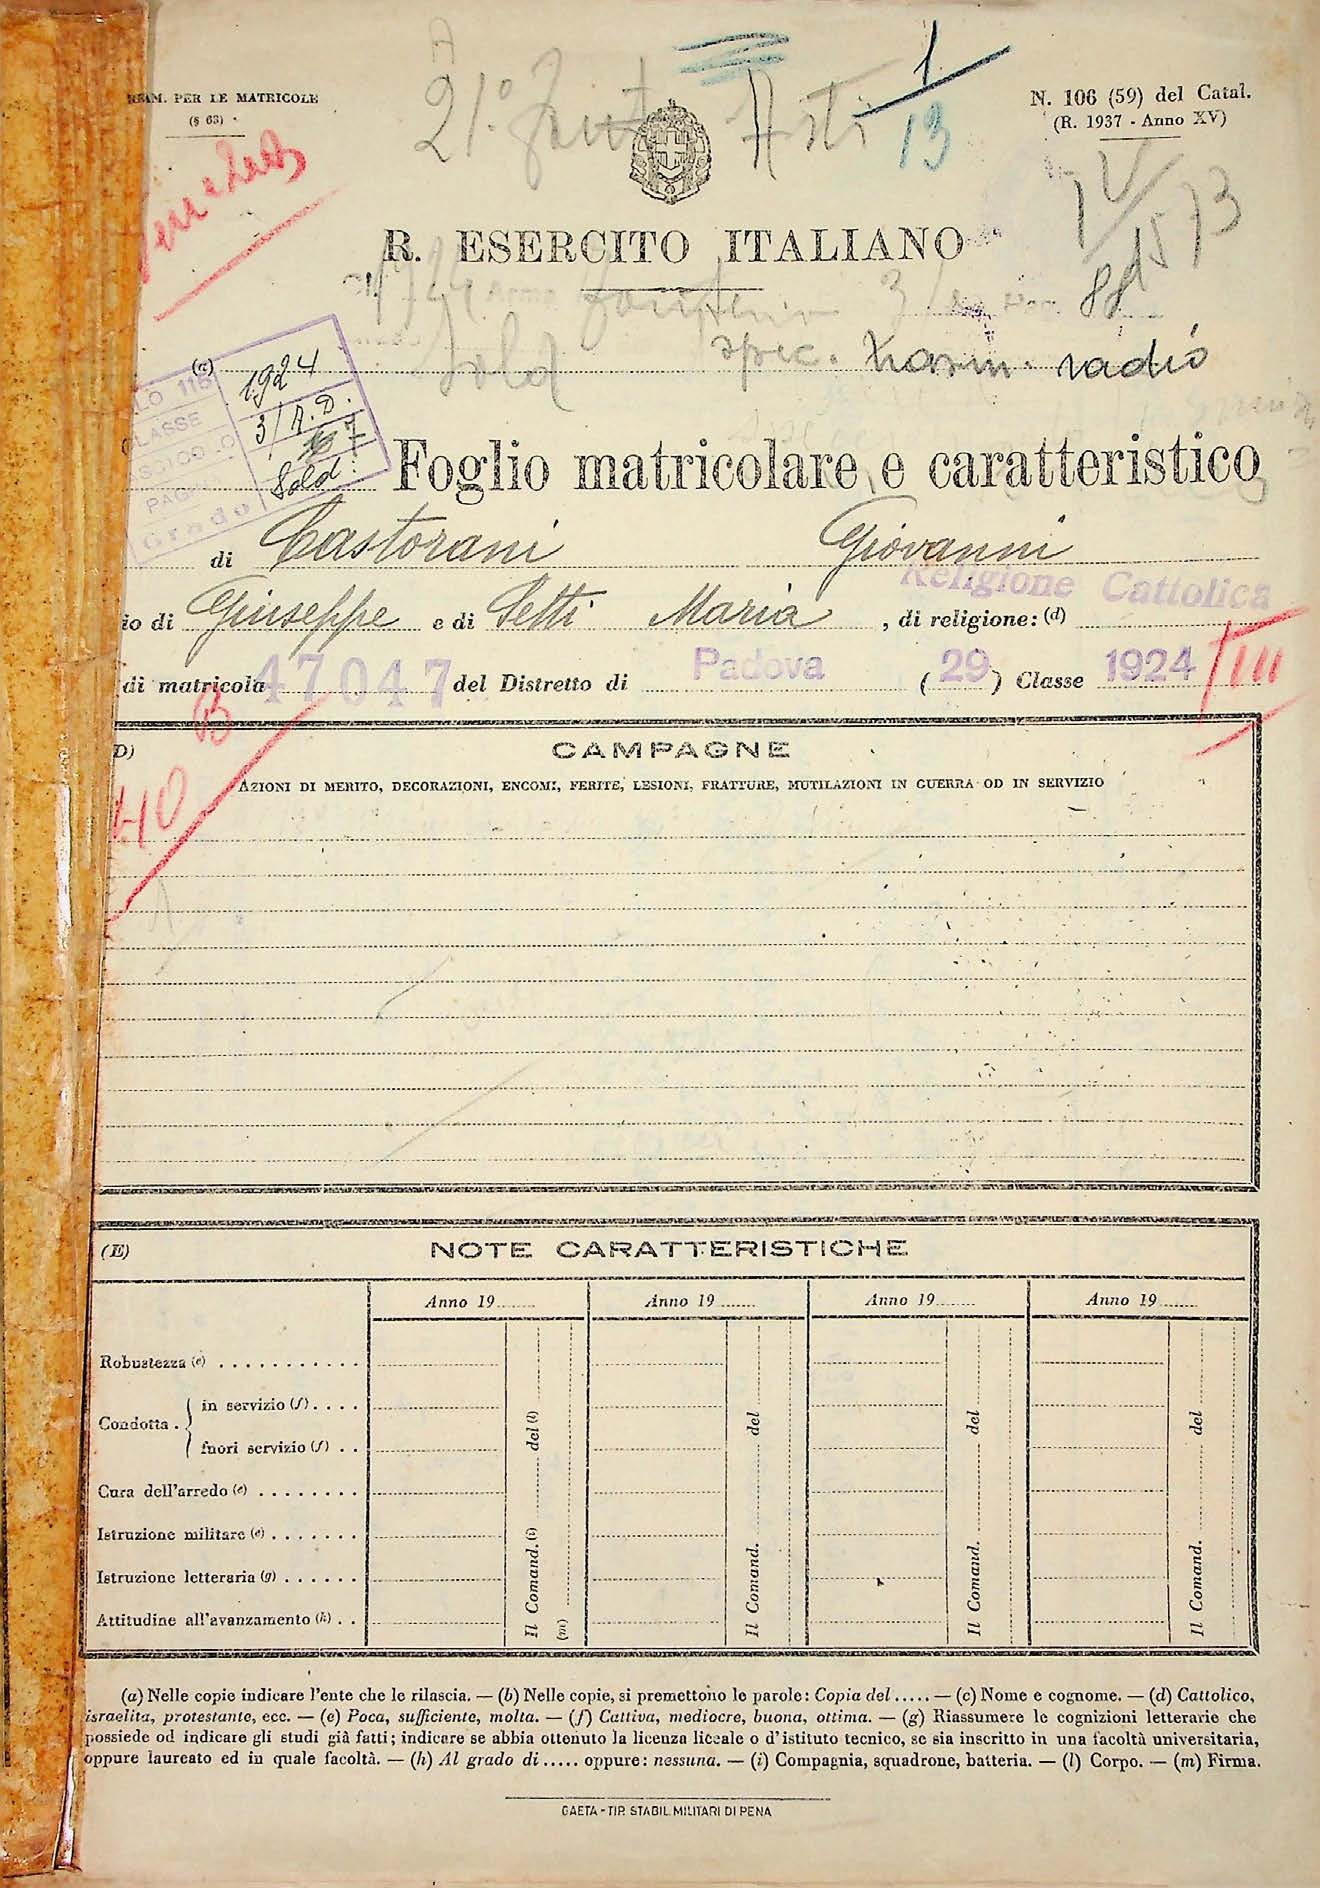 PER LE MATRICOLE
(§ 63)
N. 106 (59) del Catal.
(R. 1937 - Anno XV)
21°
Asti
1
13
R. ESERCITO ITALIANO
3
88
Sold
spec. radio
(c)
CLASSE
1924
3/A.D.
7
Grado
Sold.
Foglio matricolare e caratteristico
di Castorani Giovanni
Religione Cattolica
io di Giuseppe e di Setti Maria, di religione: (d)
di matricola 47047 del Distretto di Padova (29) Classe 1924
VIII
B
40
D)
CAMPAGNE
AZIONI DI MERITO, DECORAZIONI, ENCOMI, FERITE, LESIONI, FRATTURE, MUTILAZIONI IN GUERRA OD IN SERVIZIO
(E)
NOTE CARATTERISTICHE
Anno 19........ Anno 19....... Anno 19........ Anno 19.......
Robustezza (e) . . . . . . . . . . .
Condotta . { in servizio (f) . . . .
fuori servizio (f) . .
Cura dell'arredo (e) . . . . . . . .
Istruzione militare (e) . . . . . . .
Istruzione letteraria (g) . . . . . .
Attitudine all'avanzamento (h) . .
Il Comand. (i) ........ del (l)
(m)
Il Comand. ........ del
Il Comand. ........ del
Il Comand. ........ del
(a) Nelle copie indicare l'ente che le rilascia. — (b) Nelle copie, si premettono le parole: Copia del ..... — (c) Nome e cognome. — (d) Cattolico,
israelita, protestante, ecc. — (e) Poca, sufficiente, molta. — (f) Cattiva, mediocre, buona, ottima. — (g) Riassumere le cognizioni letterarie che
possiede od indicare gli studi già fatti; indicare se abbia ottenuto la licenza liceale o d'istituto tecnico, se sia inscritto in una facoltà universitaria,
oppure laureato ed in quale facoltà. — (h) Al grado di ..... oppure: nessuna. — (i) Compagnia, squadrone, batteria. — (l) Corpo. — (m) Firma.
GAETA - TIP. STABIL. MILITARI DI PENA